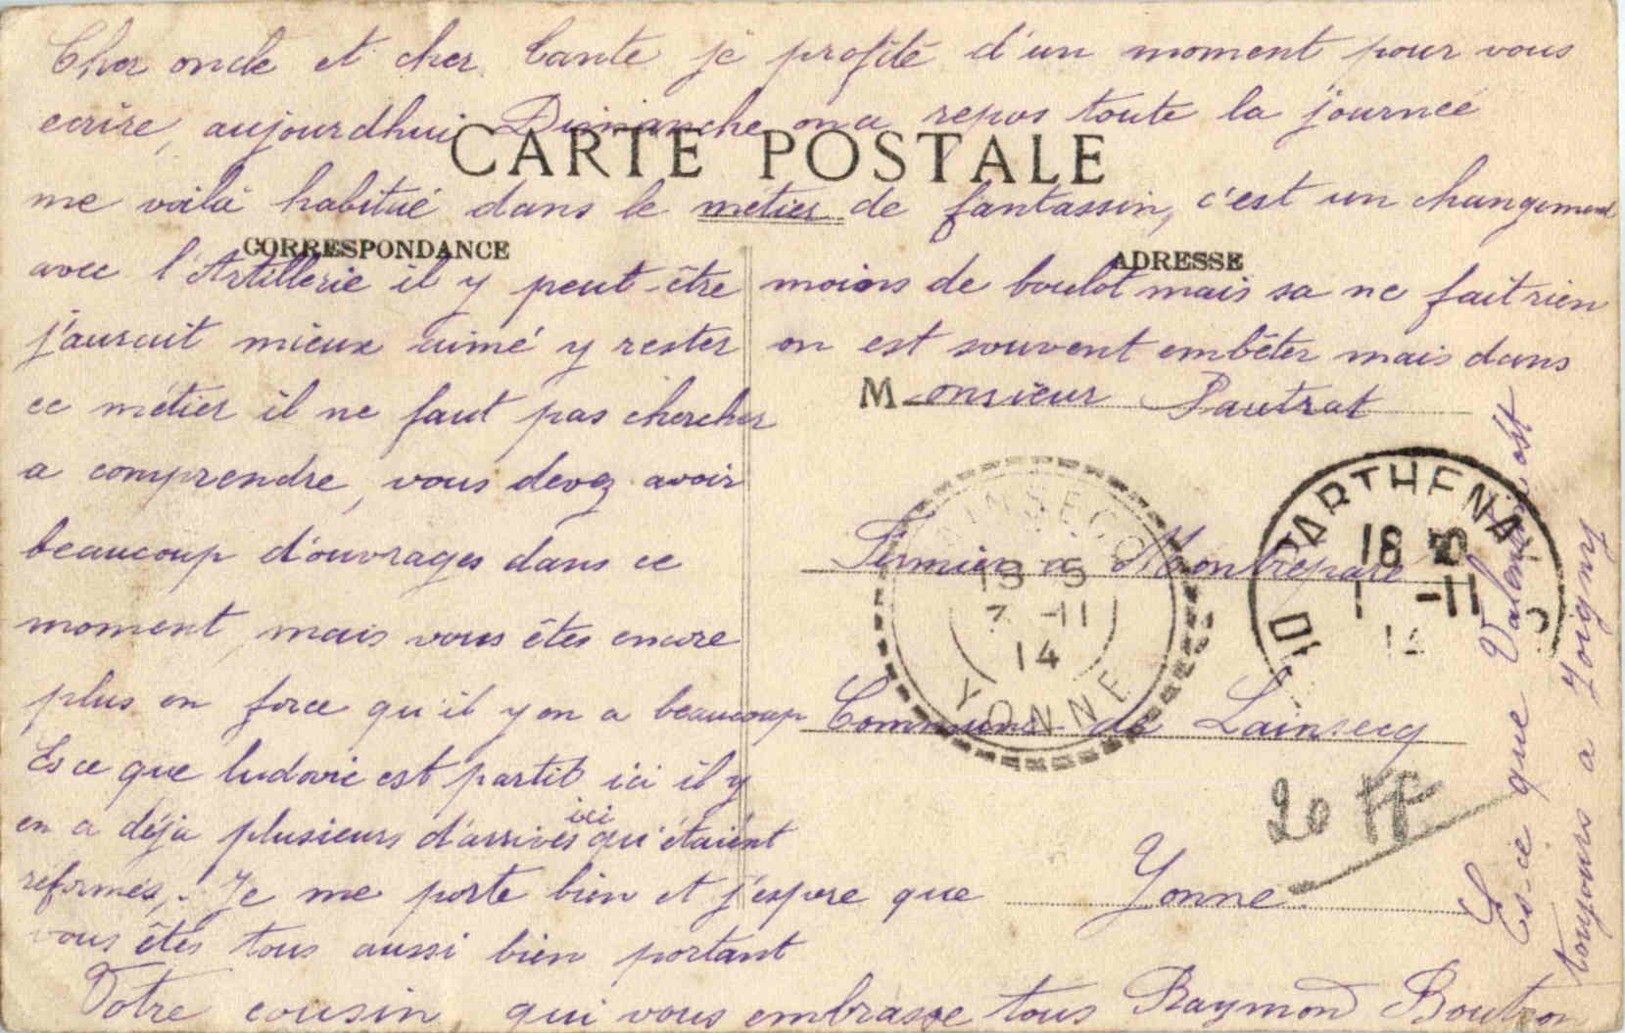 Cher oncle et cher tante je profite d'un moment pour vous
ecrire, aujourdhui Dimanche on a repos toute la journée
CARTE POSTALE
me voilà habitué dans le métier de fantassin, c'est un changement
CORRESPONDANCE
ADRESSE
avec l'Artillerie il y peut-être moins de boulot mais sa ne fait rien
j'aurait mieux aimé y rester on est souvent embêter mais dans
ce métier il ne faut pas chercher
a comprendre, vous devez avoir
beaucoup d'ouvrages dans ce
moment, mais vous êtes encore
plus en force qu'il y en a beaucoup
Es ce que ludovic est partit ici il y
en a déja plusieurs d'arrivés ici qui étaient
reformés,. Je me porte bien et j'espere que
vous êtes tous aussi bien portant
Votre cousin qui vous embrasse tous Raymond
Monsieur Pautrat
Fermier a Montrepare
Commune de Lainsecq
Yonne
LAINSECQ
19 5
7 -11
14
YONNE
PARTHENAY
18
1 -11
14
20 FF
Es ce que Valentin est
toujours a Joigny